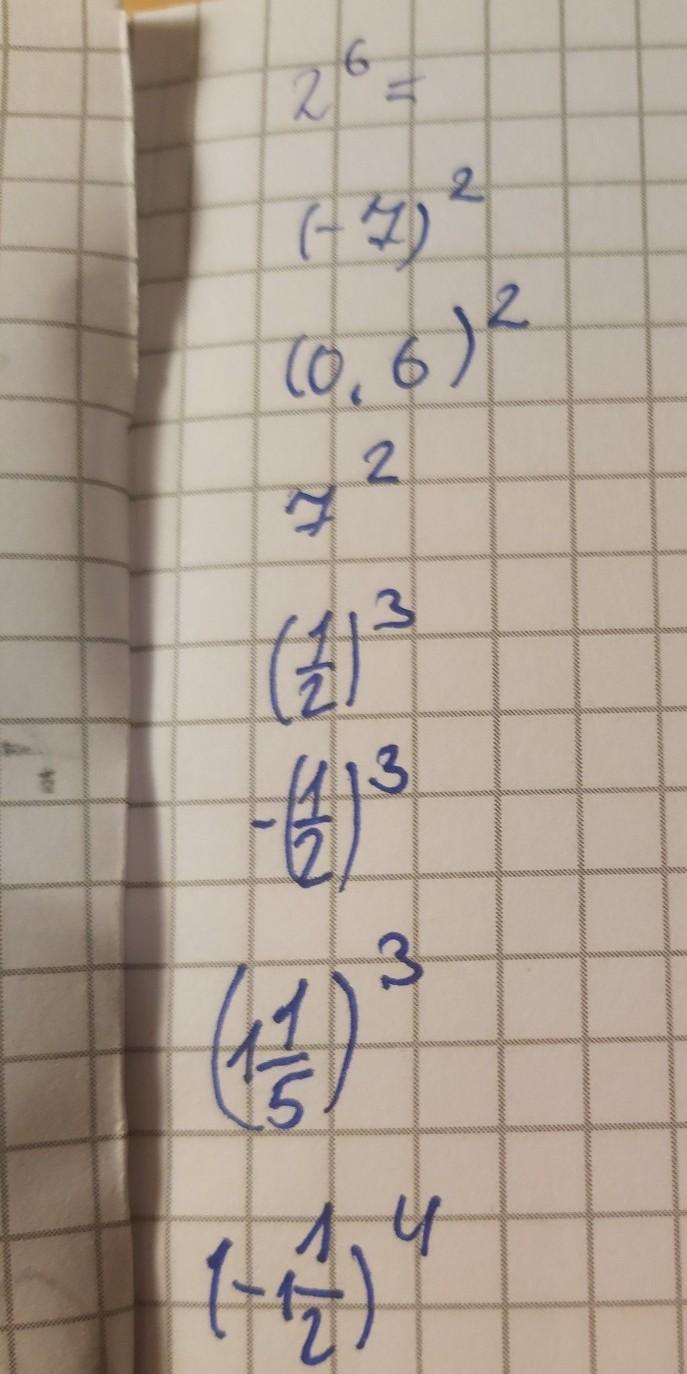 2⁶ =
(-7)²
(0,6)²
7²
(1/2)³
-(1/2)³
(1 1/5)³
(-1 1/2)⁴